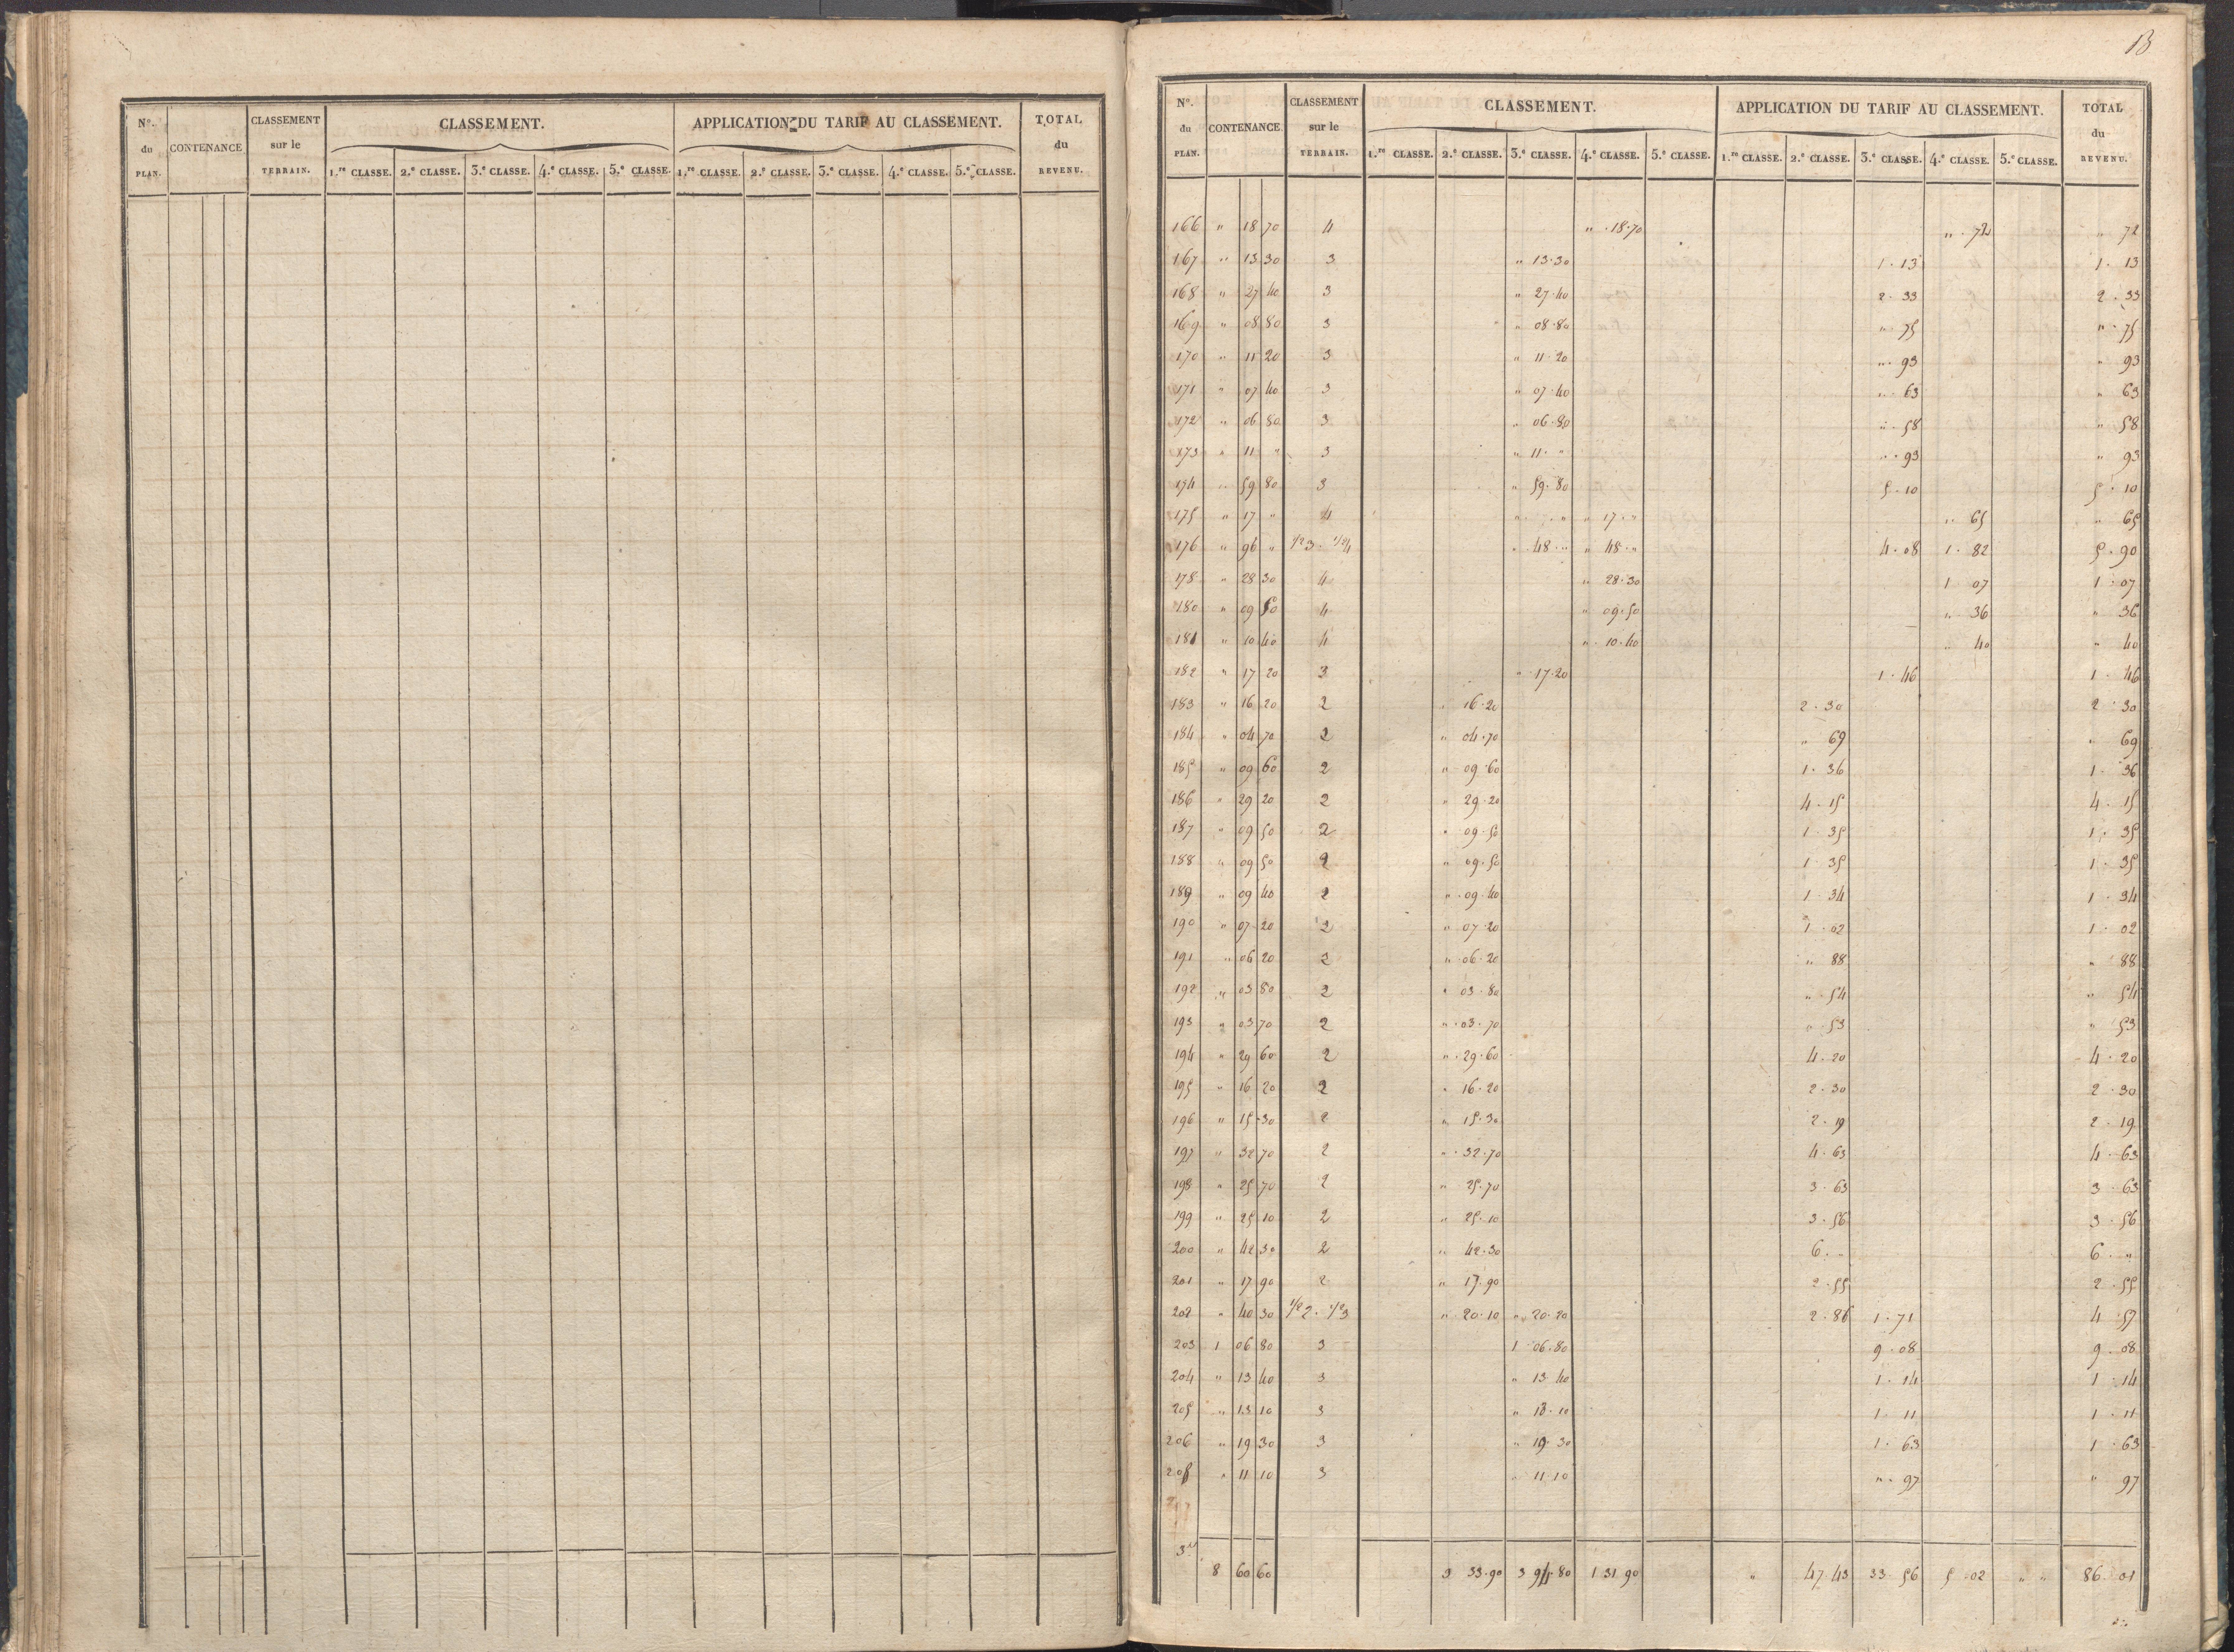 N°. du PLAN. CONTENANCE CLASSEMENT sur le TERRAIN. CLASSEMENT. APPLICATION DU TARIF AU CLASSEMENT. TOTAL du REVENU.
1.re CLASSE. 2.e CLASSE. 3.e CLASSE. 4.e CLASSE. 5.e CLASSE. 1.re CLASSE. 2.e CLASSE. 3.e CLASSE. 4.e CLASSE. 5.e CLASSE.
13
N°. du PLAN. CONTENANCE CLASSEMENT sur le TERRAIN. CLASSEMENT. APPLICATION DU TARIF AU CLASSEMENT. TOTAL du REVENU.
1.re CLASSE. 2.e CLASSE. 3.e CLASSE. 4.e CLASSE. 5.e CLASSE. 1.re CLASSE. 2.e CLASSE. 3.e CLASSE. 4.e CLASSE. 5.e CLASSE.
166 " 18 70 4 " . 18.70 " . 72 " 72
167 " 13 30 3 " 13.30 1 . 13 1 . 13
168 " 27 40 3 " 27.40 2 . 33 2 . 33
169 " 08 80 3 " 08.80 " . 75 " . 75
170 " 11 20 3 " 11.20 " . 93 " 93
171 " 07 40 3 " 07.40 " . 63 " 63
172 " 06 80 3 " 06.80 " . 58 " 58
173 " 11 " 3 " 11. " " . 93 " 93
174 " 59 80 3 " 59.80 5 . 10 5 . 10
175 " 17 " 4 " . " " 17. " " . 65 " 65
176 " 96 " 1/2 3 . 1/2 4 " . 48 . " " 48 . " 4 . 08 1 . 82 5 . 90
178 " 28 30 4 " 28.30 1 07 1 . 07
180 " 09 50 4 " 09.50 " . 36 " 36
181 " 10 40 4 " . 10.40 " . 40 " 40
182 " 17 20 3 " . 17.20 1 . 46 1 . 46
183 " 16 20 2 " 16.20 2 . 30 2 . 30
184 " 04 70 2 " 04.70 " 69 " 69
185 " 09 60 2 " 09.60 1 . 36 1 . 36
186 " 29 20 2 " 29.20 4 . 15 4 . 15
187 " 09 50 2 " 09.50 1 . 35 1 . 35
188 " 09 50 2 " 09.50 1 . 35 1 . 35
189 " 09 40 2 " . 09.40 1 . 34 1 . 34
190 " 07 20 2 " 07.20 1 . 02 1 . 02
191 " 06 20 2 " . 06.20 " 88 " 88
192 " 03 80 2 " 03.80 " . 54 " 54
193 " 03 70 2 " . 03.70 " . 53 " 53
194 " 29 60 2 " . 29.60 4 . 20 4 . 20
195 " 16 20 2 " 16.20 2 . 30 2 . 30
196 " 15 30 2 " 15.30 2 . 19 2 . 19
197 " 32 70 2 " . 32.70 4 . 63 4 . 63
198 " 25 70 2 " 25.70 3 . 63 3 . 63
199 " 25 10 2 " 25.10 3 . 56 3 . 56
200 " 42 30 2 " 42.30 6 . " 6 . "
201 " 17 90 2 " 17.90 2 . 55 2 . 55
202 " 40 30 1/2 2 . 1/2 3 " . 20.10 " . 20.20 2 . 86 1 . 71 4 . 57
203 1 06 80 3 1 . 06.80 9 . 08 9 . 08
204 " 13 40 3 " 13 40 1 . 14 1 . 14
205 " 13 10 3 " 13.10 1 . 11 1 . 11
206 " 19 30 3 " 19.30 1 . 63 1 . 63
208 " 11 10 3 " 11.10 " . 97 " 97
8 60 60 3 33.90 3 94.80 1 31 90 " 47.43 33.56 5 . 02 " " 86 . 01